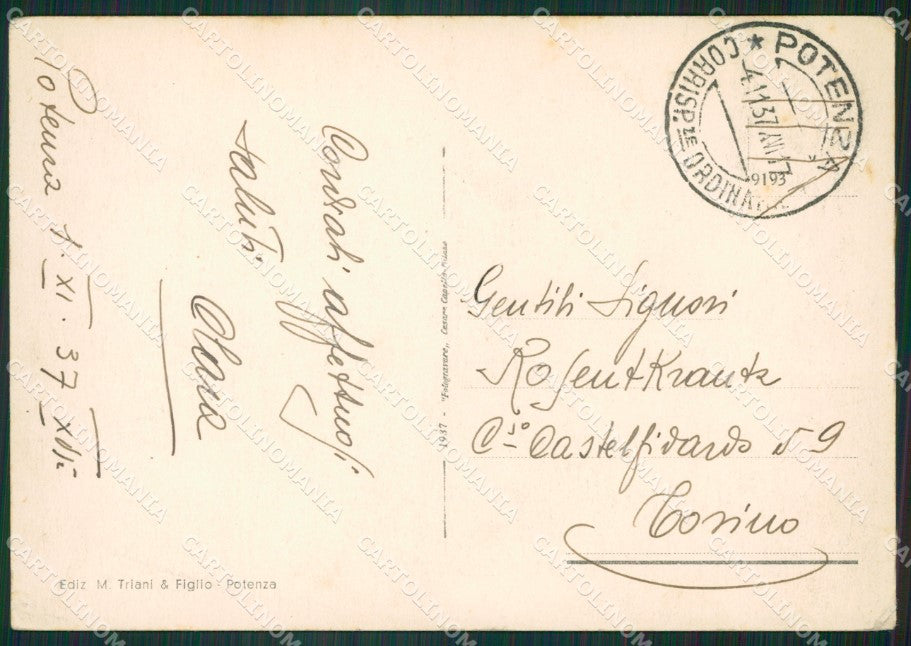 Potenza 1. XI. 37 XVI:
Cordiali affettuosi
saluti
1937 - "Fotogravure,, Cesare Capello-Milano
Gentili Signori
Rosentkrantz
C.so Castelfidardo 9
Torino
Ediz. M. Triani & Figlio - Potenza
★ POTENZA
CORRISP.ZE ORDINA
4.11.37.XVI 17
9193
CARTOLINOMANIA